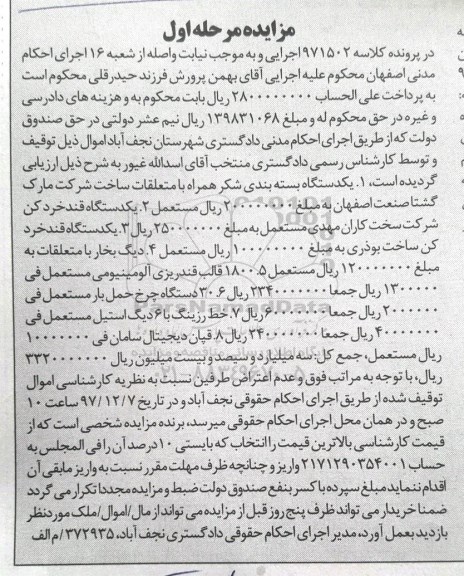 مزایده مرحله اول
در پرونده کلاسه ۹۷۱۵۰۲ اجرایی و به موجب نیابت واصله از شعبه ۱۶ اجرای احکام
مدنی اصفهان محکوم علیه اجرایی آقای بهمن پرورش فرزند حیدرقلی محکوم است
به پرداخت علی الحساب ۲۸۰۰۰۰۰۰۰۰ ریال بابت محکوم به و هزینه های دادرسی
و غیره در حق محکوم له و مبلغ ۱۳۹۸۳۱۰۶۸ ریال نیم عشر دولتی در حق صندوق
دولت که از طریق اجرای احکام مدنی دادگستری شهرستان نجف آباد اموال ذیل توقیف
و توسط کارشناس رسمی دادگستری منتخب آقای اسدالله غیور به شرح ذیل ارزیابی
گردیده است، ۱. یکدستگاه بسته بندی شکر همراه با متعلقات ساخت شرکت مارک
گشتا صنعت اصفهان به مبلغ ۲۰۰۰۰۰۰۰۰ ریال مستعمل ۲. یکدستگاه قندخرد کن
شرکت سخت کاران مهدی مستعمل به مبلغ ۲۵۰۰۰۰۰۰۰ ریال ۳. یکدستگاه قندخرد
کن ساخت بوذری به مبلغ ۱۰۰۰۰۰۰۰۰ ریال مستعمل ۴. دیگ بخار با متعلقات به
مبلغ ۱۲۰۰۰۰۰۰۰ ریال مستعمل ۵. ۱۸۰۰ قالب قندریزی آلومینیومی مستعمل فی
۱۳۰۰۰۰۰ ریال جمعا ۲۳۴۰۰۰۰۰۰۰ ریال ۶. ۳۰ دستگاه چرخ حمل بار مستعمل فی
۲۰۰۰۰۰۰ ریال جمعا ۶۰۰۰۰۰۰۰ ریال ۷. خط رزینگ با ۶ دیگ استیل مستعمل فی
۴۰۰۰۰۰۰۰ ریال جمعا ۲۴۰۰۰۰۰۰۰ ریال ۸. قپان دیجیتال سامان فی ۱۰۰۰۰۰۰۰
ریال مستعمل، جمع کل: سه میلیارد و سیصد و بیست میلیون ریال ۳۳۲۰۰۰۰۰۰۰
ریال، با توجه به مراتب فوق و عدم اعتراض طرفین نسبت به نظریه کارشناسی اموال
توقیف شده از طریق اجرای احکام حقوقی نجف آباد و در تاریخ ۹۷/۱۲/۷ ساعت ۱۰
صبح و در همان محل اجرای احکام حقوقی میرسد، برنده مزایده شخصی است که از
قیمت کارشناسی بالاترین قیمت را انتخاب که بایستی ۱۰ درصد آن را فی المجلس به
حساب ۲۱۷۱۲۹۰۳۵۴۰۰۱ واریز و چنانچه ظرف مهلت مقرر نسبت به واریز مابقی آن
اقدام ننماید مبلغ سپرده با کسر بنفع صندوق دولت ضبط و مزایده مجددا تکرار می گردد
ضمنا خریدار می تواند ظرف پنج روز قبل از مزایده می تواند از مال/اموال/ملک موردنظر
بازدید بعمل آورد، مدیر اجرای احکام حقوقی دادگستری نجف آباد، ۳۷۲۹۳۵/م الف